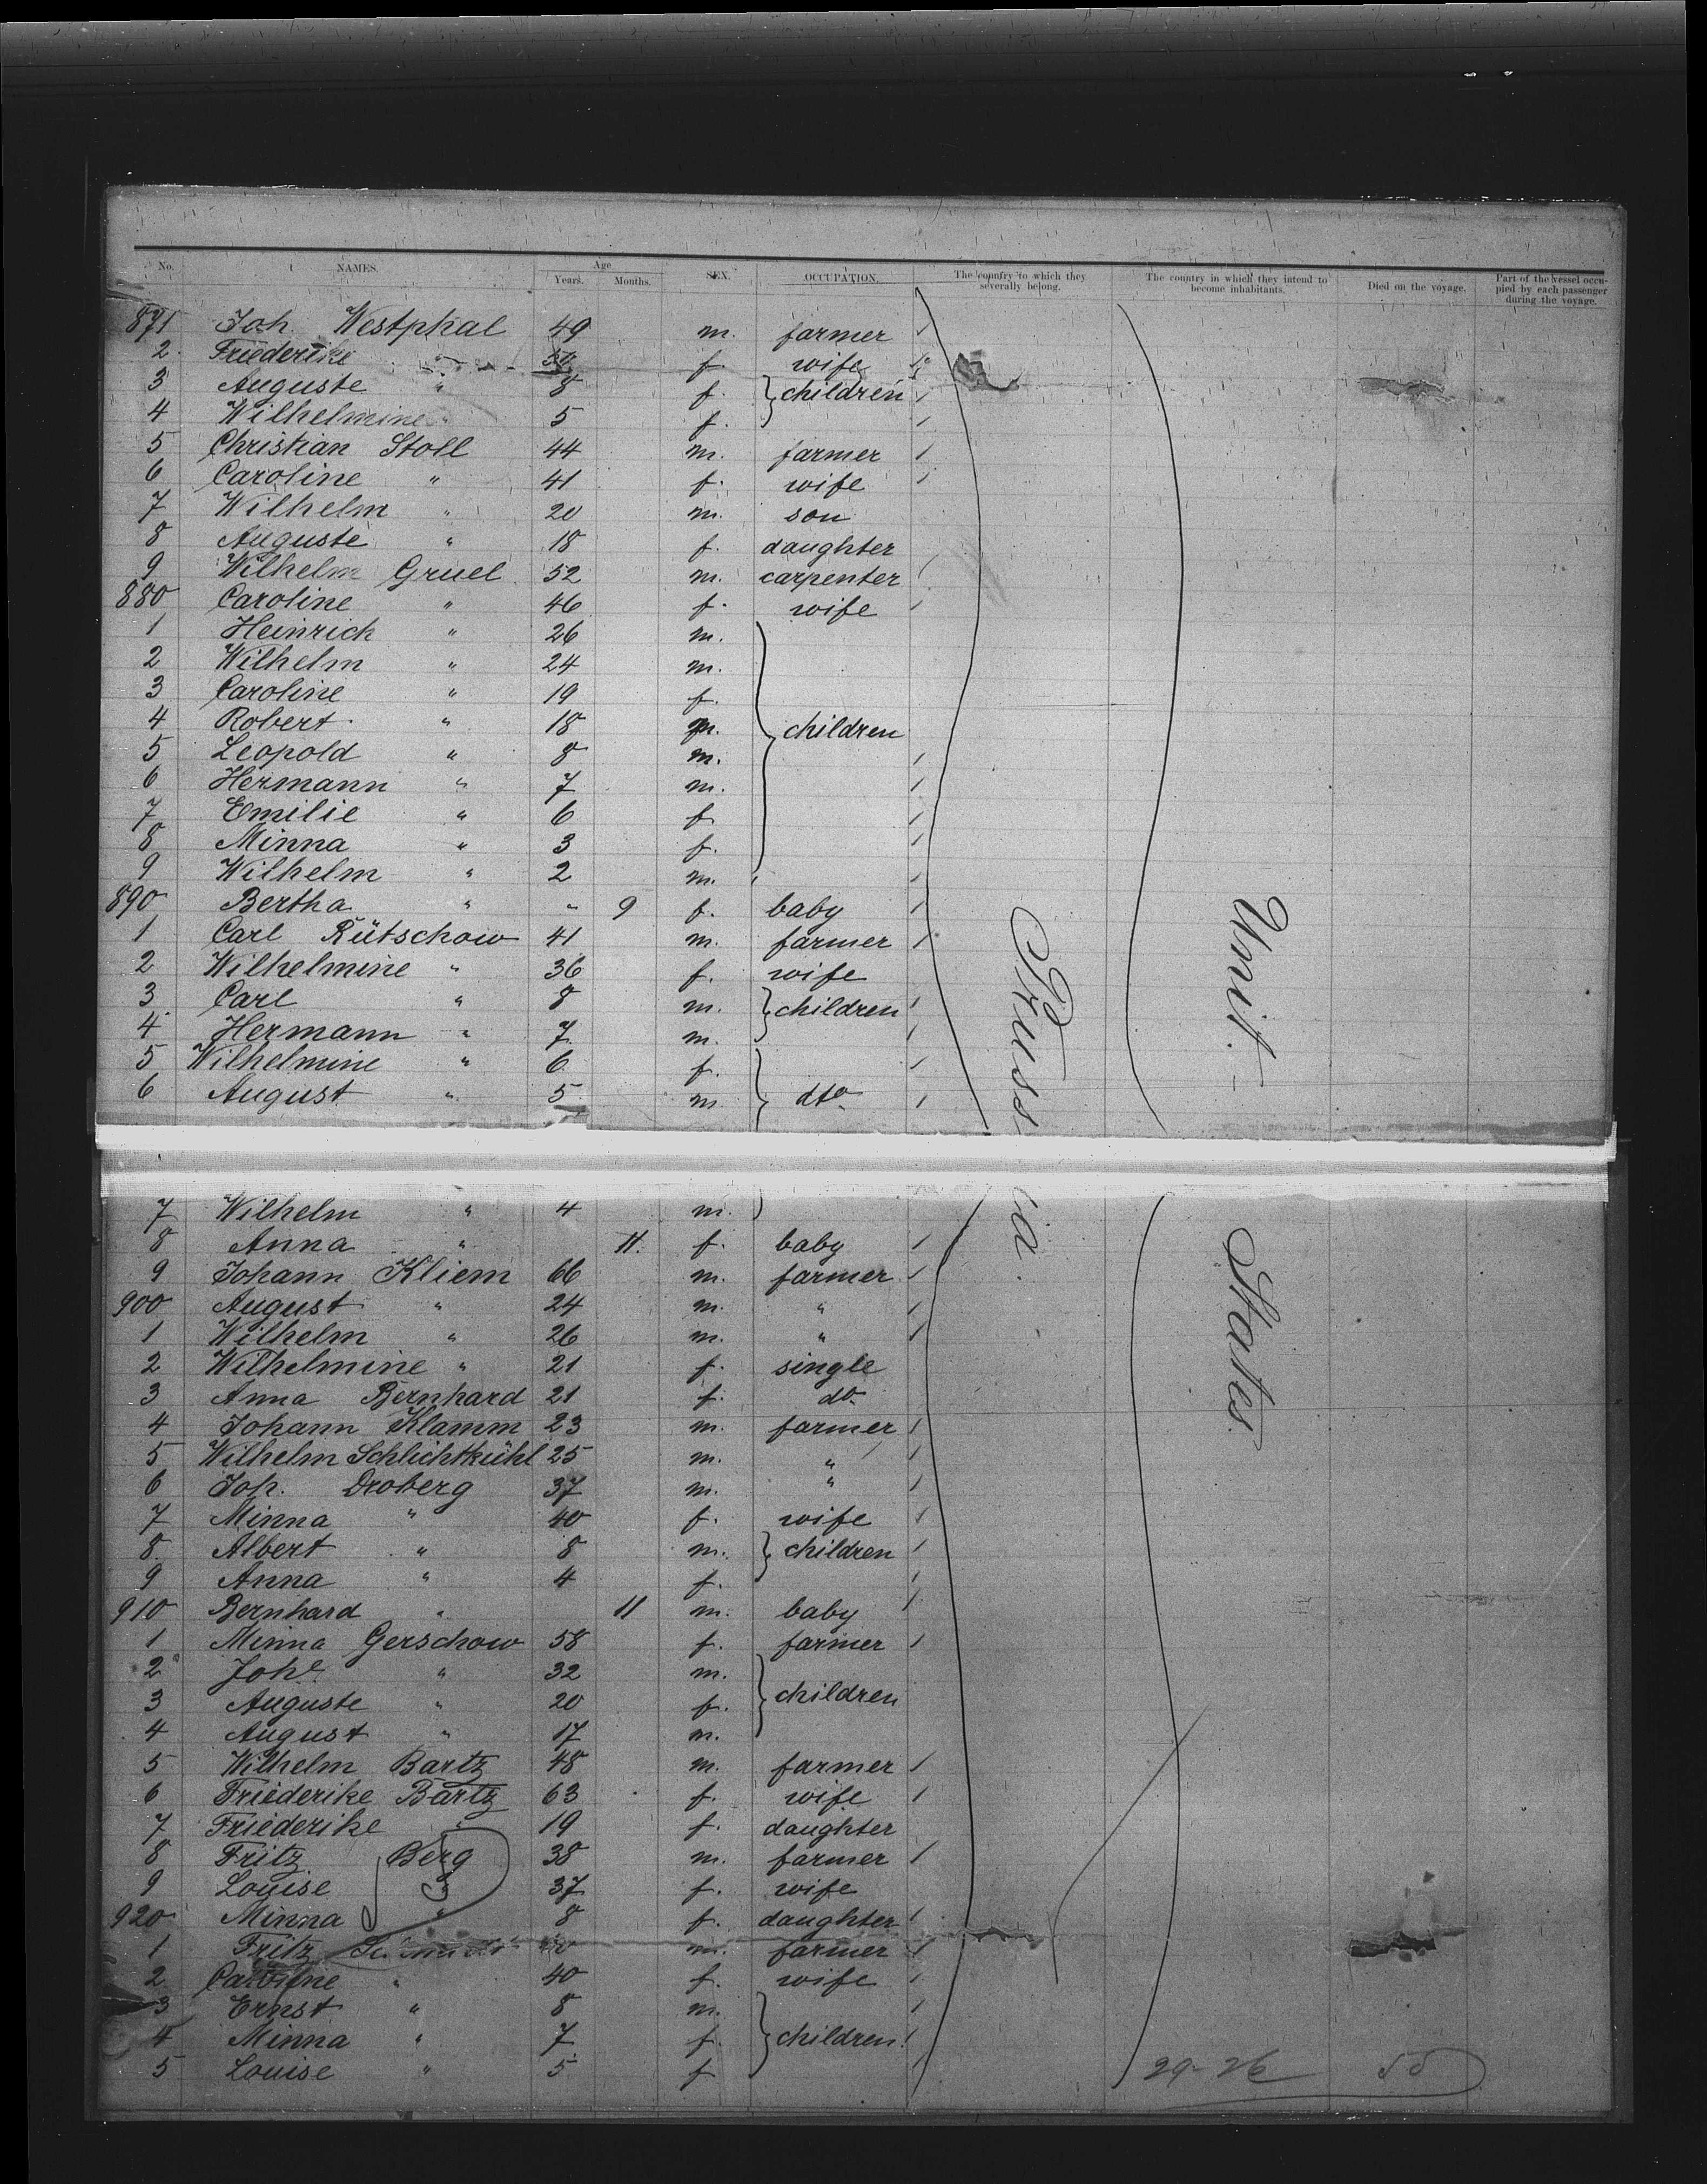 No. NAMES. Age Years. Months. SEX. OCCUPATION. The country to which they severally belong. The country in which they intend to become inhabitants. Died on the voyage. Part of the vessel occupied by each passenger during the voyage.
871 Joh. Westphal 49 m. farmer
2 Friederike " f. wife
3 Auguste " 8 f. children
4 Wilhelmine " 5 f.
5 Christian Stoll 44 m. farmer
6 Caroline " 41 f. wife
7 Wilhelm " 20 m. son
8 Auguste " 18 f. daughter
9 Wilhelm Gruel 52 m. carpenter
880 Caroline " 46 f. wife
1 Heinrich " 26 m.
2 Wilhelm " 24 m.
3 Caroline " 19 f.
4 Robert " 18 m. children
5 Leopold " 8 m.
6 Hermann " 7 m.
7 Emilie " 6 f.
8 Minna " 3 f.
9 Wilhelm " 2 m.
890 Bertha " " 9 f. baby
1 Carl Rütschow 41 m. farmer
2 Wilhelmine " 36 f. wife
3 Carl " 8 m. children
4 Hermann " 7 m.
5 Wilhelmine " 6 f.
6 August " 5 m. dto
7 Wilhelm " 4 m.
8 Anna " 11. f. baby
9 Johann Kliem 66 m. farmer
900 August " 24 m. "
1 Wilhelm " 26 m. "
2 Wilhelmine " 21 f. single
3 Anna Bernhard 21 f. do.
4 Johann Klamm 23 m. farmer
5 Wilhelm Schlichtkühl 25 m. "
6 Joh. Droberg 37 m. "
7 Minna " 40 f. wife
8 Albert " 8 m. children
9 Anna " 4 f.
910 Bernhard " 11 m. baby
1 Minna Gerschow 58 f. farmer
2 Joh. " 32 m.
3 Auguste " 20 f. children
4 August " 17 m.
5 Wilhelm Bartz 48 m. farmer
6 Friederike Bartz 63 f. wife
7 Friederike " 19 f. daughter
8 Fritz Berg 38 m. farmer
9 Louise " 37 f. wife
920 Minna " 8 f. daughter
1 Fritz m. farmer
2 Caroline " 40 f. wife
3 Ernst " 8 m.
4 Minna " 7 f. children
5 Louise " 5 f
Prussia.
Unit. States
29-26 55